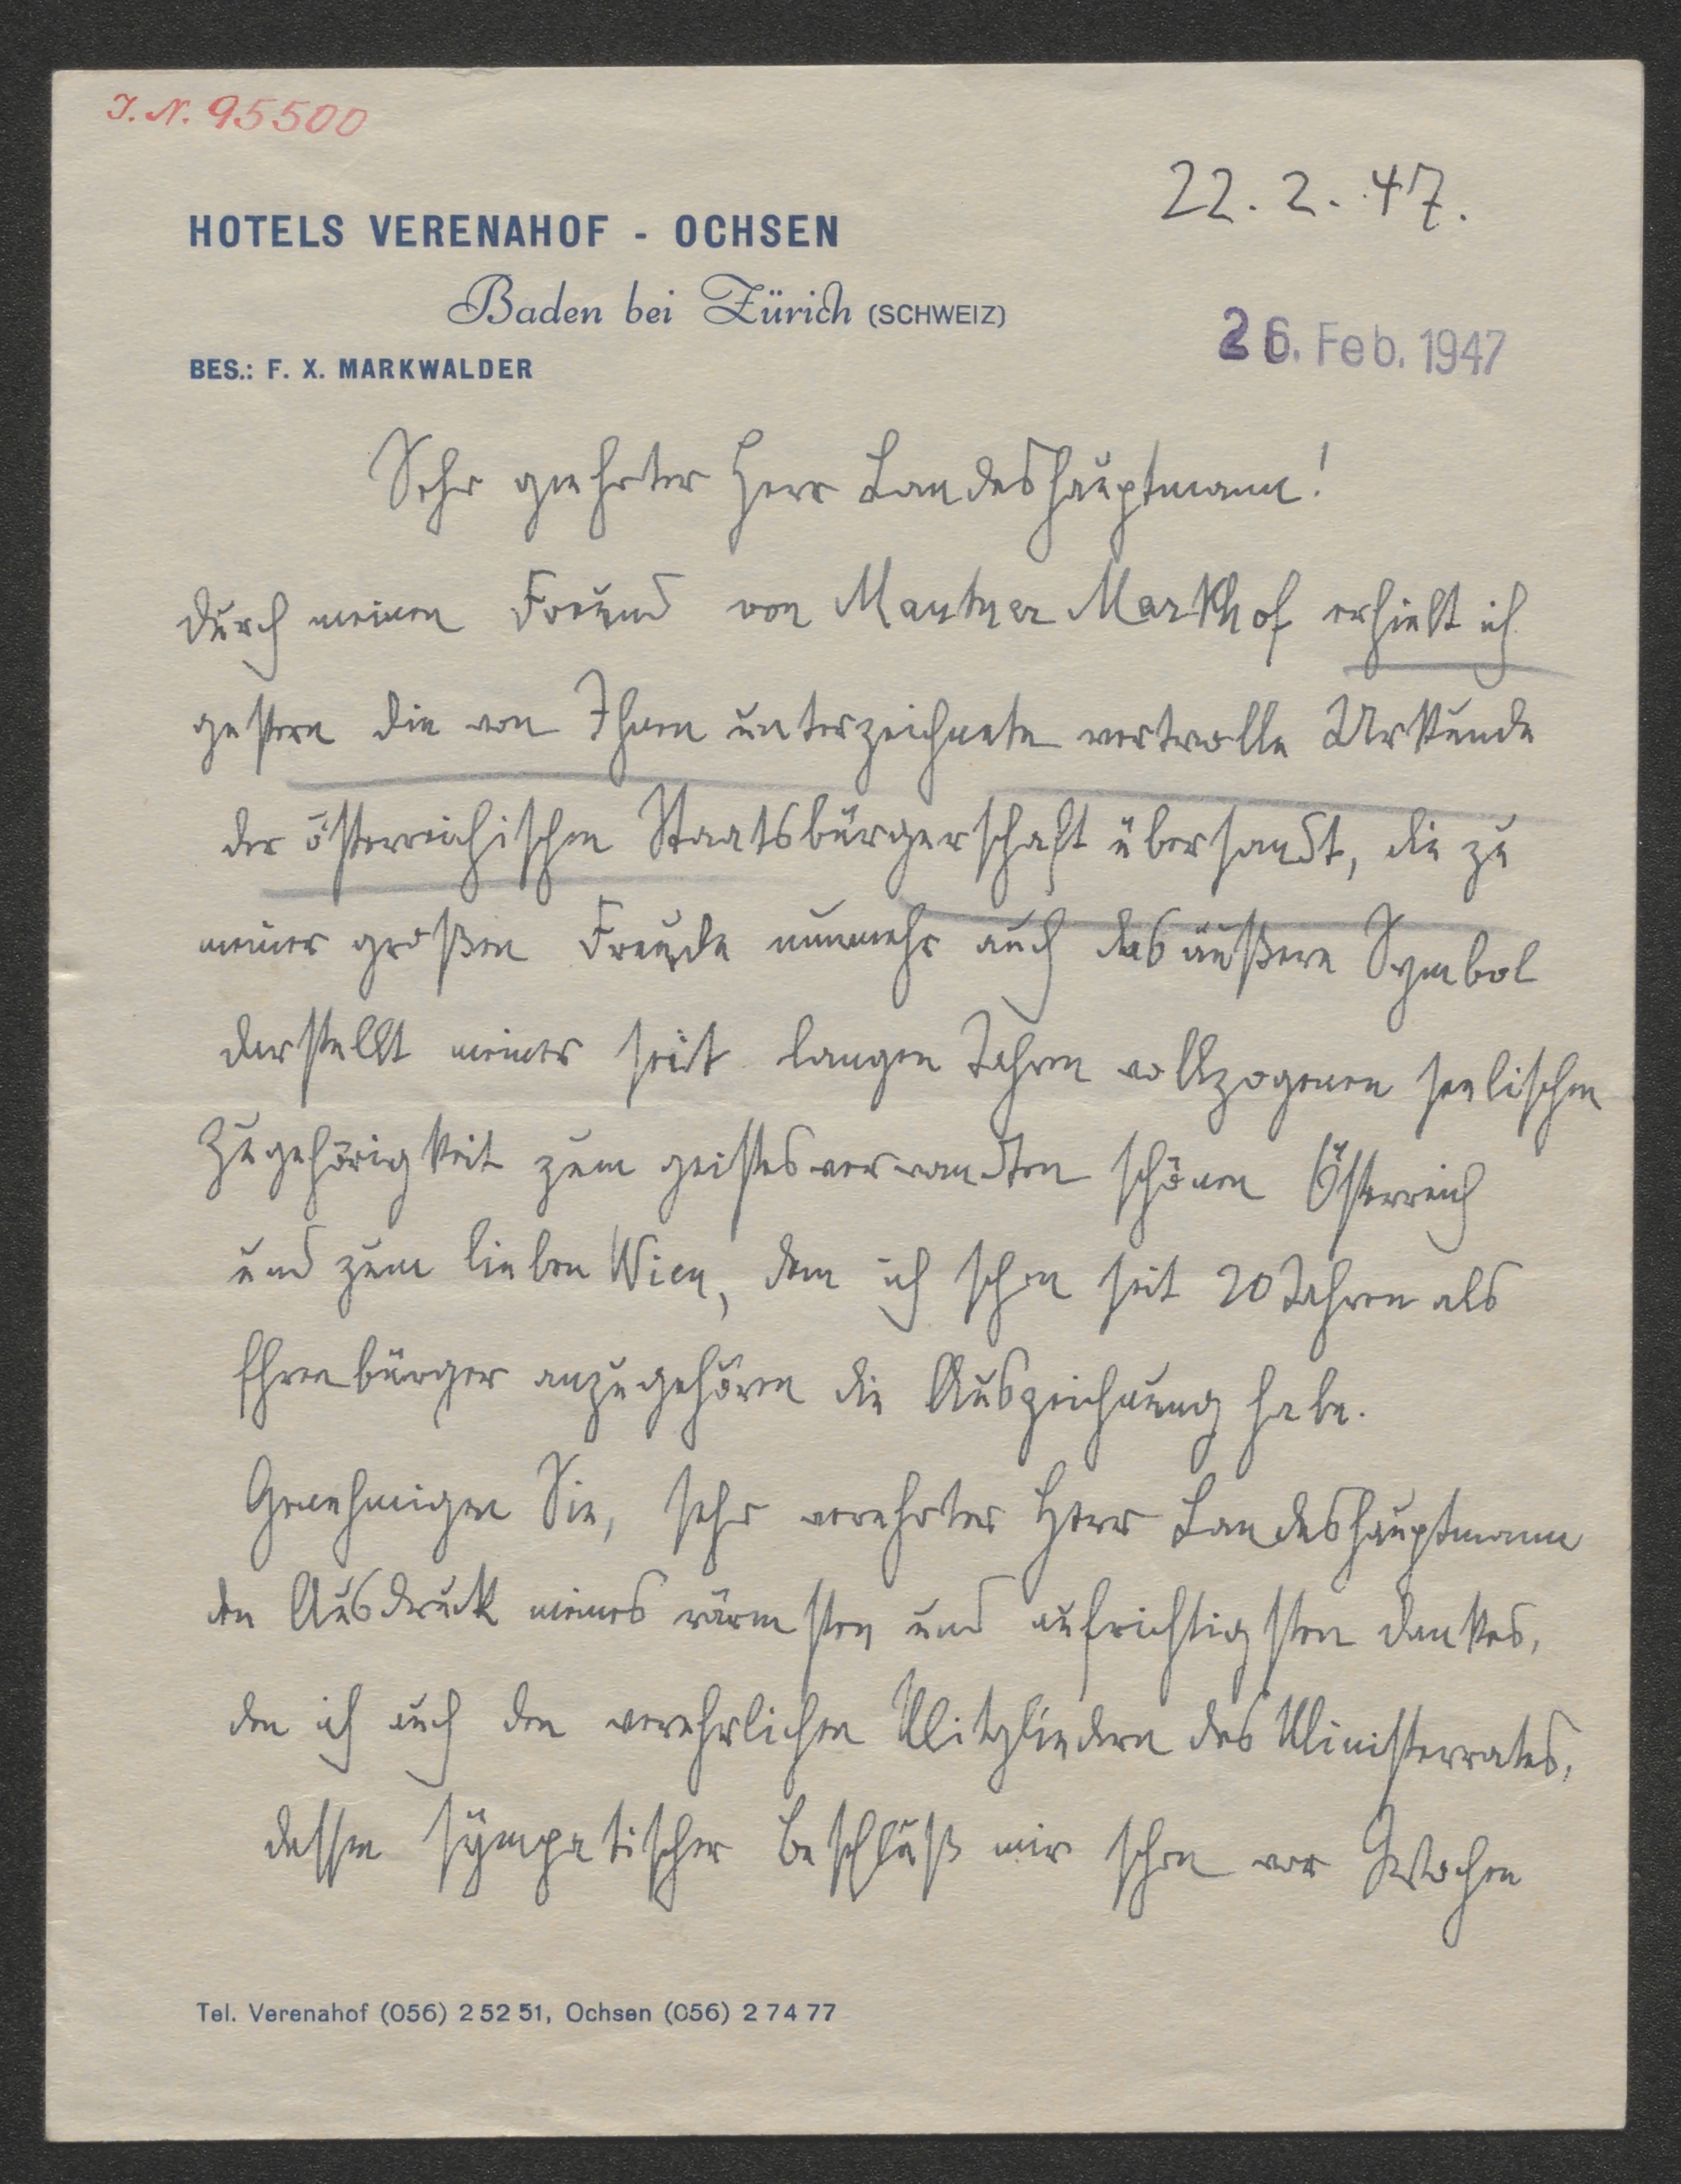 J. N. 95500
22. 2. 47.
HOTELS VERENAHOF - OCHSEN
Baden bei Zürich (SCHWEIZ)
26. Feb. 1947
BES.: F. X. MARKWALDER
Sehr geehrter Herr Landeshauptmann!
durch meinen Freund von Mautner Markhof erhielt ich
gestern die von Ihnen unterzeichnete wertvolle Urkunde
der österreichischen Staatsbürgerschaft übersandt, die zu
meiner großen Freude nunmehr auch das äußere Symbol
darstellt meiner seit langen Jahren vollzogenen seelischen
Zugehörigkeit zum geistesverwandten schönen Österreich
und zum lieben Wien, dem ich schon seit 20 Jahren als
Ehrenbürger anzugehören die Auszeichnung habe.
Genehmigen Sie, sehr verehrter Herr Landeshauptmann
den Ausdruck meines wärmsten und aufrichtigsten Dankes,
den ich auch den verehrlichen Mitgliedern des Ministerrates,
dessen sympatischer Beschluß mir schon vor Wochen
Tel. Verenahof (056) 2 52 51, Ochsen (056) 2 74 77